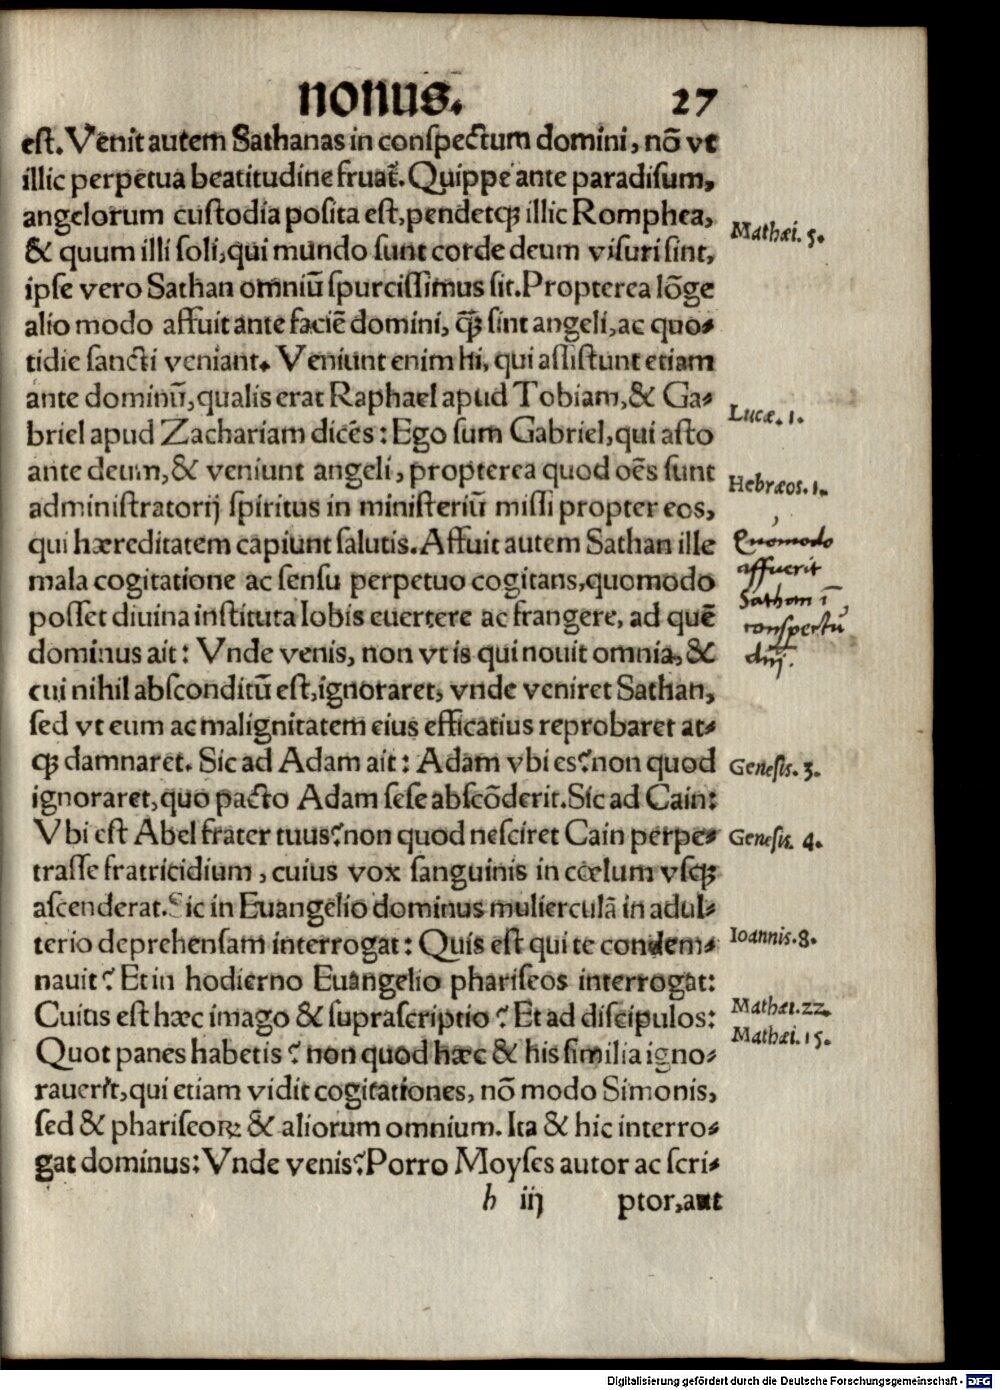 nonus. 27
est. Venit autem Sathanas in conſpectum domini, nō vt
illic perpetua beatitudine fruat̄. Quippe ante paradiſum,
angelorum cuſtodia poſita eſt, pendetqꝫ illic Romphea,
Mathæi. 5.
& quum illi ſoli, qui mundo ſunt corde deum viſuri ſint,
ipſe vero Sathan omniū ſpurciſſimus ſit. Propterea lōge
alio modo affuit ante faciē domini, qꝫ̄ ſint angeli, ac quo⸗
tidie ſancti veniant. Veniunt enim hi, qui aſſiſtunt etiam
ante dominū, qualis erat Raphael apud Tobiam, & Ga⸗
Lucæ. 1.
briel apud Zachariam dicēs: Ego ſum Gabriel, qui aſto
ante deum, & veniunt angeli, propterea quod oēs ſunt
Hebræos. 1.
adminiſtratorij ſpiritus in miniſteriū miſſi propter eos,
qui hæreditatem capiunt ſalutis. Affuit autem Sathan ille
Quomodo
affuerit
Sathan ī
conſpectū
dnj.
mala cogitatione ac ſenſu perpetuo cogitans, quomodo
poſſet diuina inſtituta Iobis euertere ac frangere, ad quē
dominus ait: Vnde venis, non vt is qui nouit omnia, &
cui nihil abſconditū eſt, ignoraret, vnde veniret Sathan,
ſed vt eum ac malignitatem eius efficatius reprobaret at⸗
qꝫ damnaret. Sic ad Adam ait: Adam vbi es? non quod
Geneſis. 3.
ignoraret, quo pacto Adam ſeſe abſcōderit. Sic ad Cain:
Vbi eſt Abel frater tuus? non quod neſciret Cain perpe⸗
Geneſis. 4.
traſſe fratricidium, cuius vox ſanguinis in cœlum vſqꝫ
aſcenderat. Sic in Euangelio dominus mulierculā in adul⸗
terio deprehenſam interrogat: Quis eſt qui te condem⸗
Ioannis. 8.
nauit? Et in hodierno Euangelio phariſeos interrogat:
Cuius eſt hæc imago & ſupraſcriptio? Et ad diſcipulos:
Mathæi. 22.
Mathæi. 15.
Quot panes habetis? non quod hæc & his ſimilia igno⸗
rauerit, qui etiam vidit cogitationes, nō modo Simonis,
ſed & phariſeoꝝ & aliorum omnium. Ita & hic interro⸗
gat dominus: Vnde venis? Porro Moyſes autor ac ſcri⸗
h iij ptor, aut
Digitalisierung gefördert durch die Deutsche Forschungsgemeinschaft - DFG